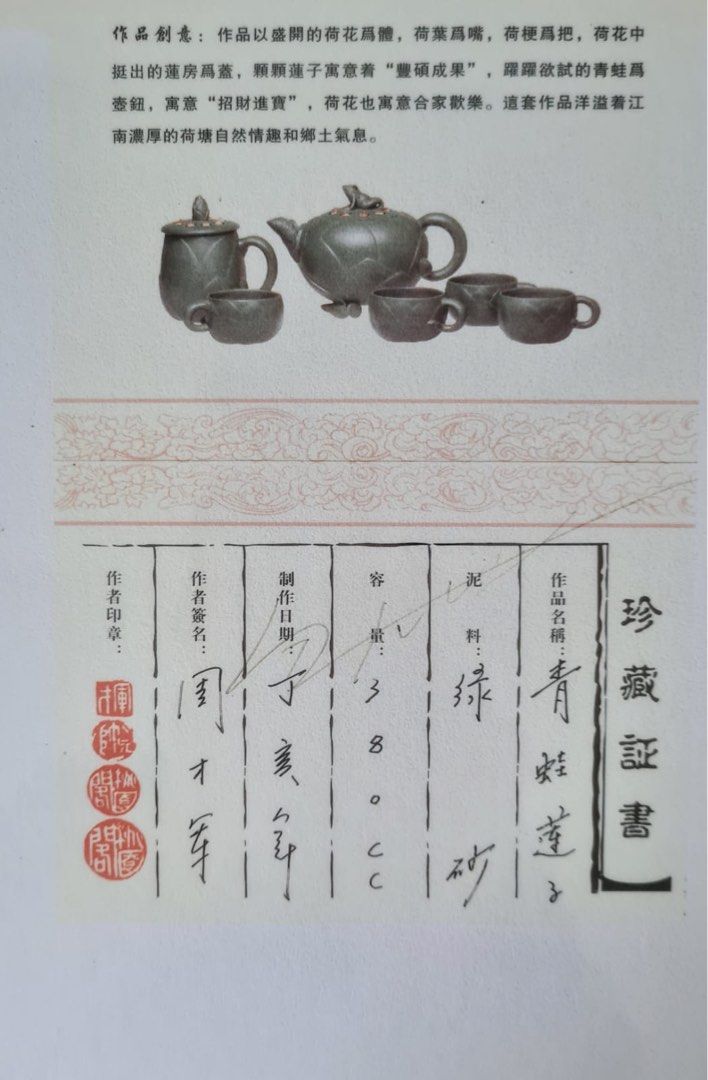 作品創意：作品以盛開的荷花爲體，荷葉爲嘴，荷梗爲把，荷花中
挺出的蓮房爲蓋，顆顆蓮子寓意着“豐碩成果”，躍躍欲試的青蛙爲
壺鈕，寓意“招財進寶”，荷花也寓意合家歡樂。這套作品洋溢着江
南濃厚的荷塘自然情趣和鄉土氣息。
珍藏証書
作品名稱：青蛙蓮子
泥料：綠砂
容量：380CC
制作日期：丁亥年
作者簽名：周才軍
作者印章：